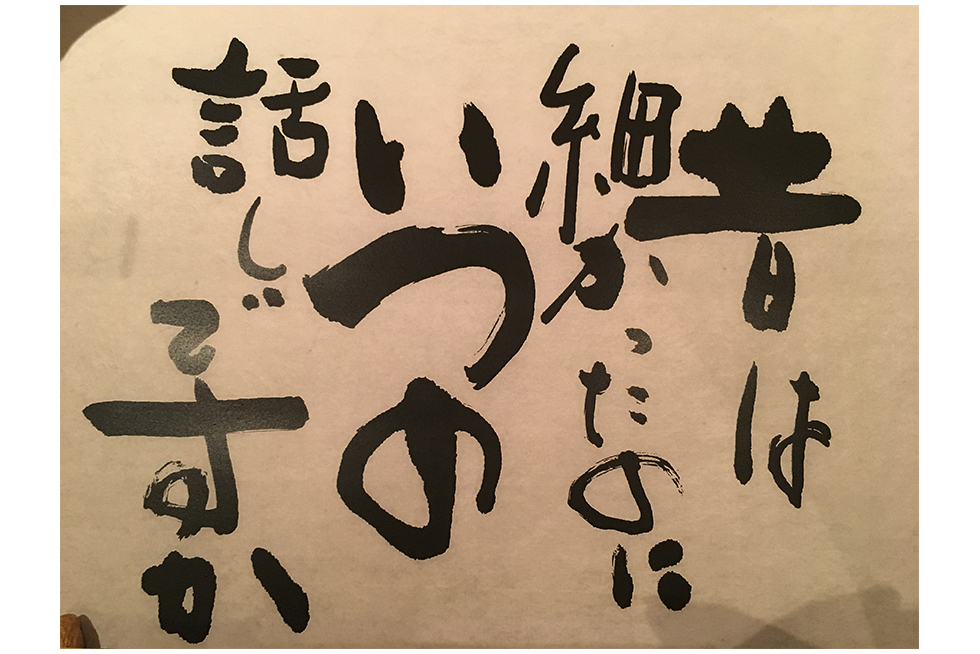 昔は
細かったのに
いつの
話しですか